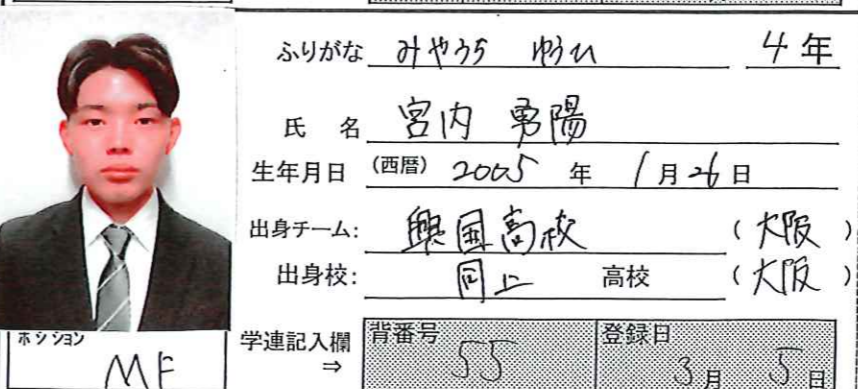 ふりがな みやうち ゆうひ 4年
氏 名 宮内 勇陽
生年月日 (西暦) 2005 年 1月26日
出身チーム: 興国高校 (大阪)
出身校: 同上 高校 (大阪)
ポジション MF
学連記入欄 ⇒ 背番号 55 登録日 3月 5日